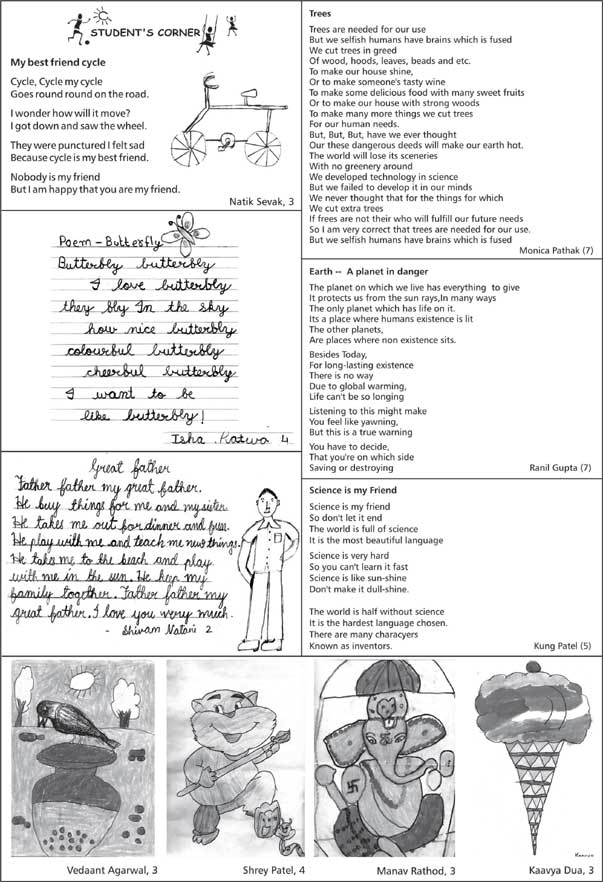 STUDENT'S CORNER
My best friend cycle
Cycle, Cycle my cycle
Goes round round on the road.
I wonder how will it move?
I got down and saw the wheel.
They were punctured I felt sad
Because cycle is my best friend.
Nobody is my friend
But I am happy that you are my friend.
Natik Sevak, 3
Poem - Butterfly
Butterbly butterbly
I love butterbly
they bly In the sky
how nice butterbly
colourbul butterbly
cheerbul butterbly
I want to be
like butterbly!
Isha Katwa 4
Great father
Father father my great father.
He buy things for me and my sister.
He takes me out for dinner and fun.
He play with me and teach me new things.
He take me to the beach and play
with me in the sun. He keep my
family together. Father father my
great father. I love you very much.
- Shivam Natani 2
Trees
Trees are needed for our use
But we selfish humans have brains which is fused
We cut trees in greed
Of wood, hoods, leaves, beads and etc.
To make our house shine,
Or to make someone's tasty wine
To make some delicious food with many sweet fruits
Or to make our house with strong woods
To make many more things we cut trees
For our human needs.
But, But, But, have we ever thought
Our these dangerous deeds will make our earth hot.
The world will lose its sceneries
With no greenery around
We developed technology in science
But we failed to develop it in our minds
We never thought that for the things for which
We cut extra trees
If frees are not their who will fulfill our future needs
So I am very correct that trees are needed for our use.
But we selfish humans have brains which is fused
Monica Pathak (7)
Earth -- A planet in danger
The planet on which we live has everything to give
It protects us from the sun rays,In many ways
The only planet which has life on it.
Its a place where humans existence is lit
The other planets,
Are places where non existence sits.
Besides Today,
For long-lasting existence
There is no way
Due to global warming,
Life can't be so longing
Listening to this might make
You feel like yawning,
But this is a true warning
You have to decide,
That you're on which side
Saving or destroying
Ranil Gupta (7)
Science is my Friend
Science is my friend
So don't let it end
The world is full of science
It is the most beautiful language
Science is very hard
So you can't learn it fast
Science is like sun-shine
Don't make it dull-shine.
The world is half without science
It is the hardest language chosen.
There are many characyers
Known as inventors.
Kung Patel (5)
Vedaant Agarwal, 3
Shrey Patel, 4
Manav Rathod, 3
Kaavya Dua, 3